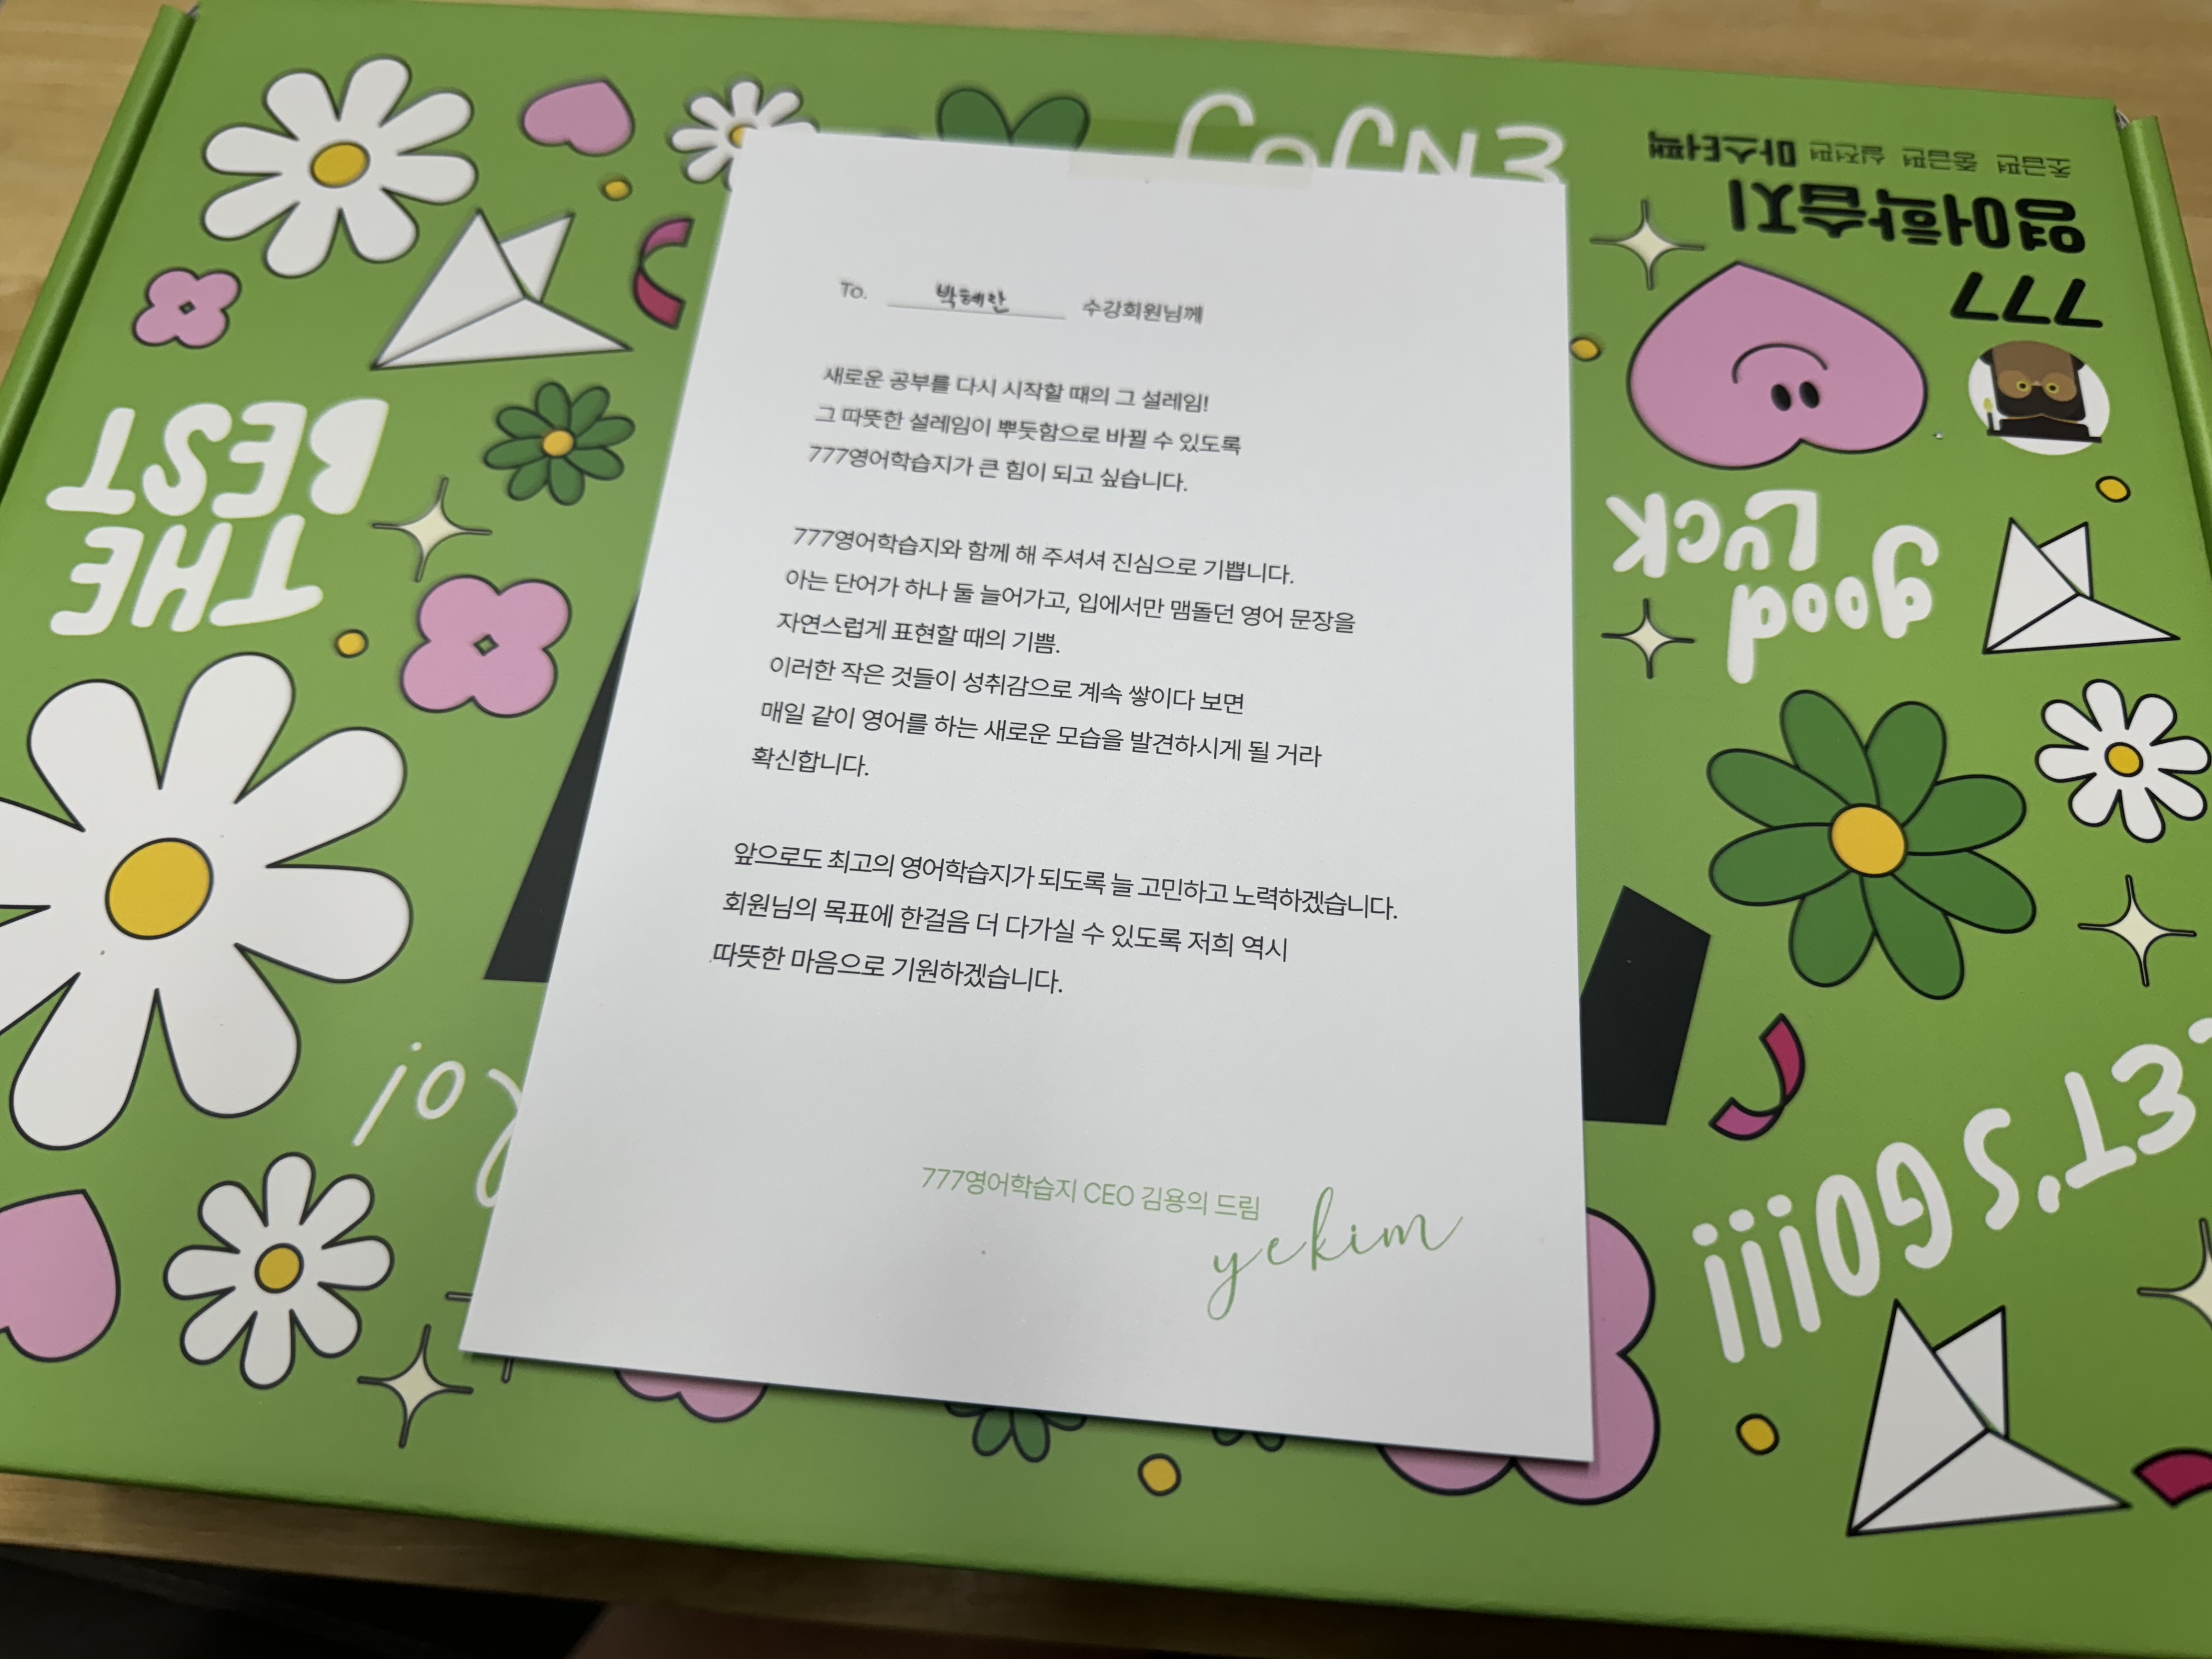 To. 박혜란 수강회원님께
새로운 공부를 다시 시작할 때의 그 설레임!
그 따뜻한 설레임이 뿌듯함으로 바뀔 수 있도록
777영어학습지가 큰 힘이 되고 싶습니다.
777영어학습지와 함께 해 주셔셔 진심으로 기쁩니다.
아는 단어가 하나 둘 늘어가고, 입에서만 맴돌던 영어 문장을
자연스럽게 표현할 때의 기쁨.
이러한 작은 것들이 성취감으로 계속 쌓이다 보면
매일 같이 영어를 하는 새로운 모습을 발견하시게 될 거라
확신합니다.
앞으로도 최고의 영어학습지가 되도록 늘 고민하고 노력하겠습니다.
회원님의 목표에 한걸음 더 다가실 수 있도록 저희 역시
따뜻한 마음으로 기원하겠습니다.
777영어학습지 CEO 김용의 드림
yekim
777
영어학습지
초급편 중급편 실전편 마스터팩
good
LUCK
THE
BEST
ENJOJ
ET'S GOiii